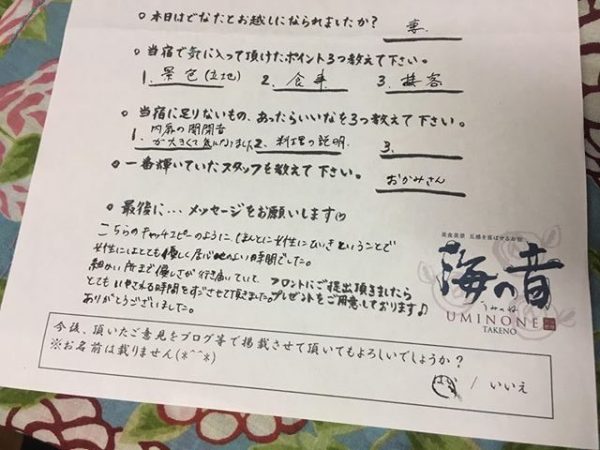 ○本日はどなたとお越しになられましたか？ 妻
○当宿で気に入って頂けたポイント3つ教えて下さい。
1. 景色(立地) 2. 食事 3. 接客
○当宿に足りないもの、あったらいいなを3つ教えて下さい。
1. 内扉の開閉音が大きくて気になりました 2. 料理の説明 3.
○一番輝いていたスタッフを教えて下さい。 おかみさん
○最後に…メッセージをお願いします♡
こちらのキャッチコピーのように、ほんとに女性にひいきということで
女性にはとても優しく居心地のよい時間でした。
細かい所まで優しさが行き届いていて、
とても いやされる時間をすごさせて頂きました。
ありがとうございました。
フロントにご提出頂きましたら
プレゼントをご用意しております♪
美食美景 五感を喜ばせるお宿
海の音
うみのね
UMINONE
TAKENO
今後、頂いたご意見をブログ等で掲載させて頂いてもよろしいでしょうか？
※お名前は載りません(*^^*)
はい / いいえ